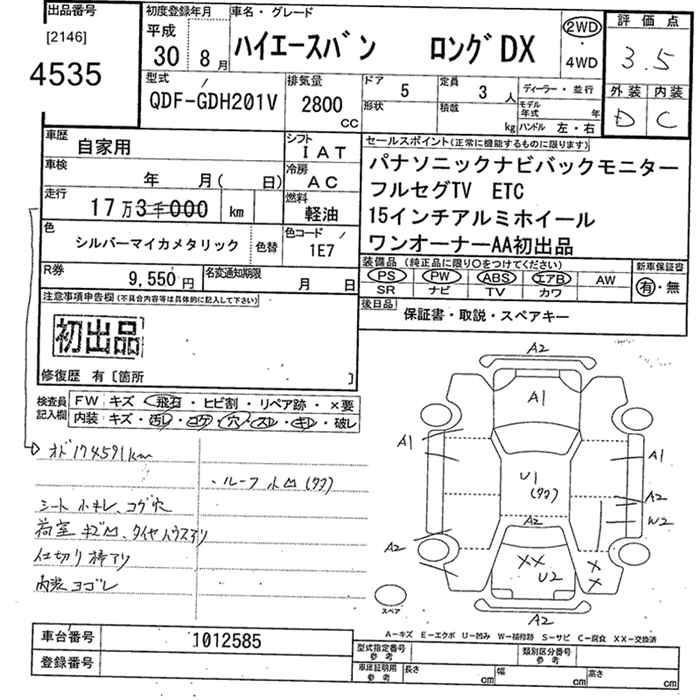 出品番号
[2146]
4535
初度登録年月
平成
30 8月
車名・グレード
ハイエースバン ロングDX
2WD
・
4WD
評価点
3.5
外装 内装
D C
型式
QDF-GDH201V
排気量
2800
cc
ドア
5
定員
3人
形状
積載
kg
ディーラー・並行
モデル
年式 年
ハンドル 左・右
車歴
自家用
シフト
IAT
車検
年 月( 日)
冷房
AC
走行
17万3千000 km
燃料
軽油
色
シルバーマイカメタリック
色替
色コード
1E7
R券
9,550円
名変通知期限
月 日
セールスポイント(正常に機能するものに限ります)
パナソニックナビバックモニター
フルセグTV ETC
15インチアルミホイール
ワンオーナーAA初出品
装備品 (純正品に限り○をつけてください)
PS PW ABS エアB AW
SR ナビ TV カワ
新車保証書
有・無
後日品
保証書・取説・スペアキー
注意事項申告欄(不具合内容等は具体的に記入して下さい)
初出品
修復歴 有[箇所 ]
検査員
記入欄
FW キズ・飛石・ヒビ割・リペア跡・×要
内装:キズ・汚レ・コゲ・穴・スレ・キレ・破レ
オド174591km
・ルーフ小凹(ワワ)
シート小キレ、コゲ穴
荷室キズ凹、タイヤハウスアリ
仕切り棒アリ
内装ヨゴレ
A2
A1
A1
A1
U1
(ワワ)
A2
W2
A2
A2
XX
U2
X
X
A2
スペア
A-キズ E-エクボ U-凹み W-補修跡 S-サビ C-腐食 XX-交換済
車台番号
1012585
登録番号
型式指定番号
参考
類別区分番号
参考
車庫証明用
参考
長さ cm 幅 cm 高さ cm